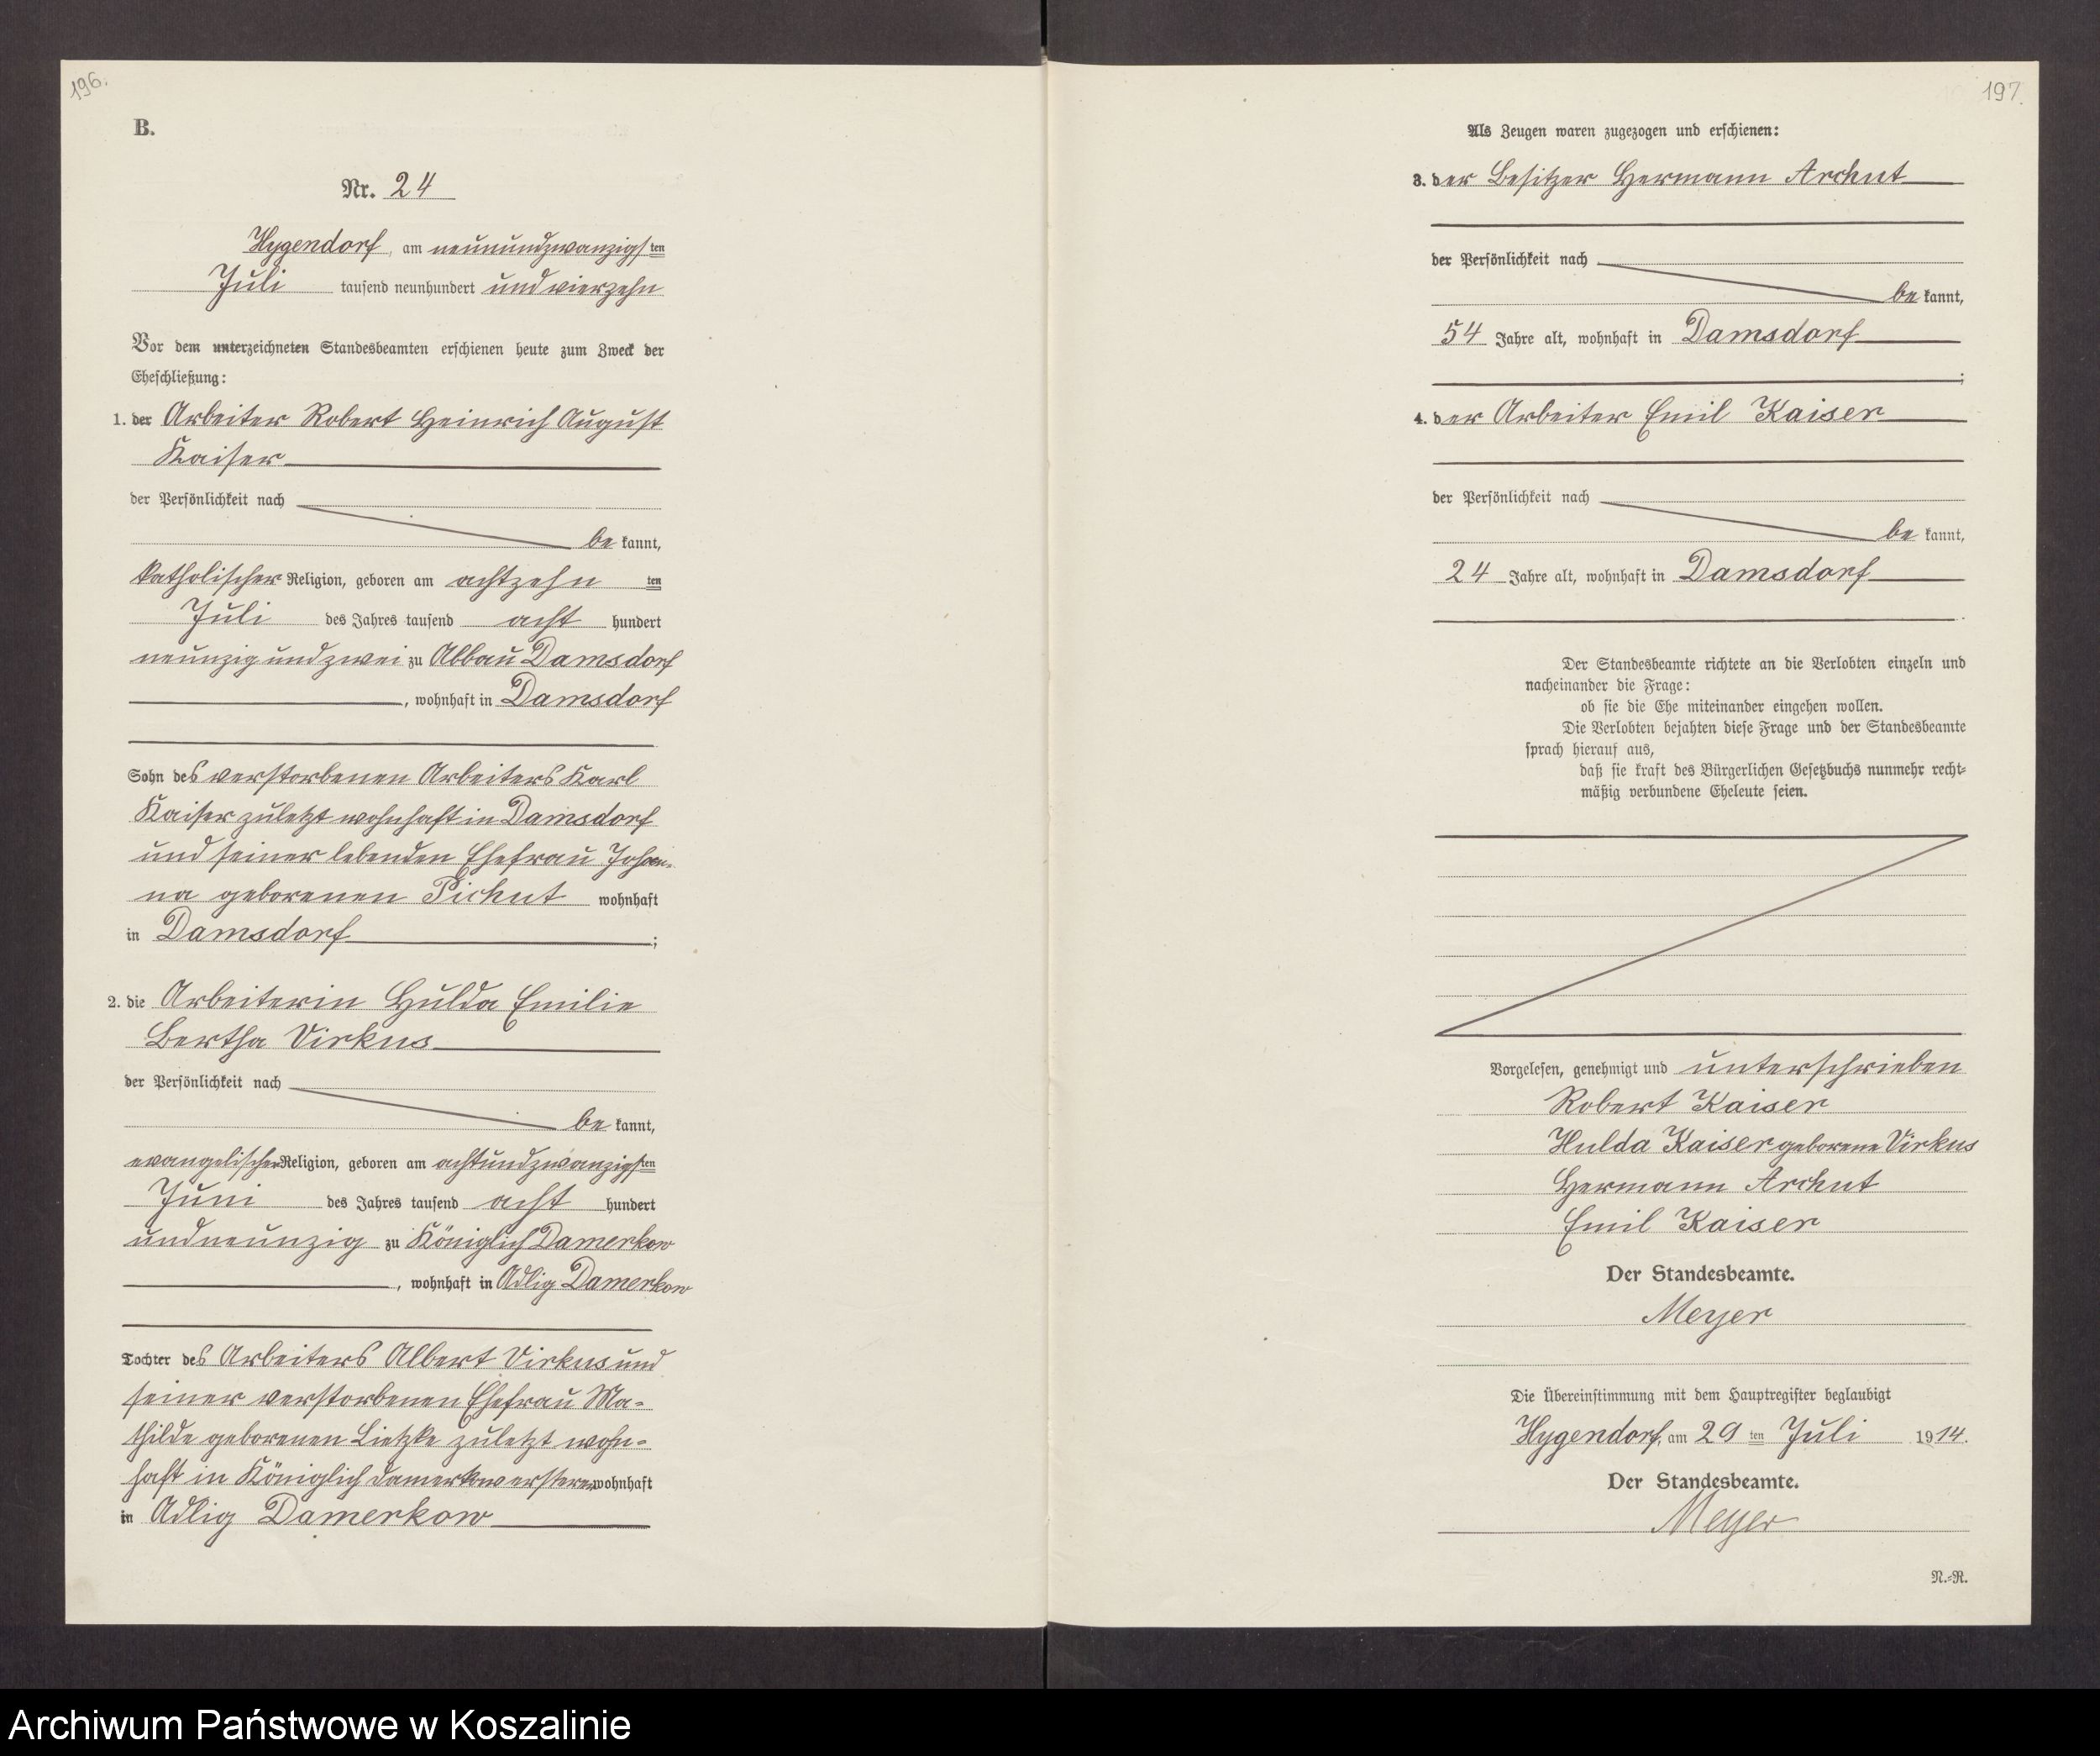 196.
B.
Nr. 24
Hygendorf, am neunundzwanzigsten
Juli tausend neunhundert und vierzehn
Vor dem unterzeichneten Standesbeamten erschienen heute zum Zweck der
Eheschließung:
1. der Arbeiter Robert Heinrich August
Kaiser
der Persönlichkeit nach
be kannt,
katholischer Religion, geboren am achtzehn ten
Juli des Jahres tausend acht hundert
neunzig und zwei zu Abbau Damsdorf
, wohnhaft in Damsdorf
Sohn des verstorbenen Arbeiters Karl
Kaiser zuletzt wohnhaft in Damsdorf
und seiner lebenden Ehefrau Johan-
na geborenen Pichut wohnhaft
in Damsdorf ;
2. die Arbeiterin Hulda Emilie
Bertha Virkus
der Persönlichkeit nach
be kannt,
evangelischer Religion, geboren am achtundzwanzigsten
Juni des Jahres tausend acht hundert
und neunzig zu Königlich Damerkow
, wohnhaft in Adlig Damerkow
Tochter des Arbeiters Albert Virkus und
seiner verstorbenen Ehefrau Ma-
thilde geborenen Lietzke zuletzt wohn-
haft in Königlich Damerkow ersterer wohnhaft
in Adlig Damerkow
197.
Als Zeugen waren zugezogen und erschienen:
3. der Besitzer Hermann Archut
der Persönlichkeit nach
be kannt,
54 Jahre alt, wohnhaft in Damsdorf
;
4. der Arbeiter Emil Kaiser
der Persönlichkeit nach
be kannt,
24 Jahre alt, wohnhaft in Damsdorf
.
Der Standesbeamte richtete an die Verlobten einzeln und
nacheinander die Frage:
ob sie die Ehe miteinander eingehen wollen.
Die Verlobten bejahten diese Frage und der Standesbeamte
sprach hierauf aus,
daß sie kraft des Bürgerlichen Gesetzbuchs nunmehr recht-
mäßig verbundene Eheleute seien.
Vorgelesen, genehmigt und unterschrieben
Robert Kaiser
Hulda Kaiser geborene Virkus
Hermann Archut
Emil Kaiser
Der Standesbeamte.
Meyer
Die Übereinstimmung mit dem Hauptregister beglaubigt
Hygendorf, am 29 ten Juli 1914.
Der Standesbeamte.
Meyer
N.-R.
Archiwum Państwowe w Koszalinie